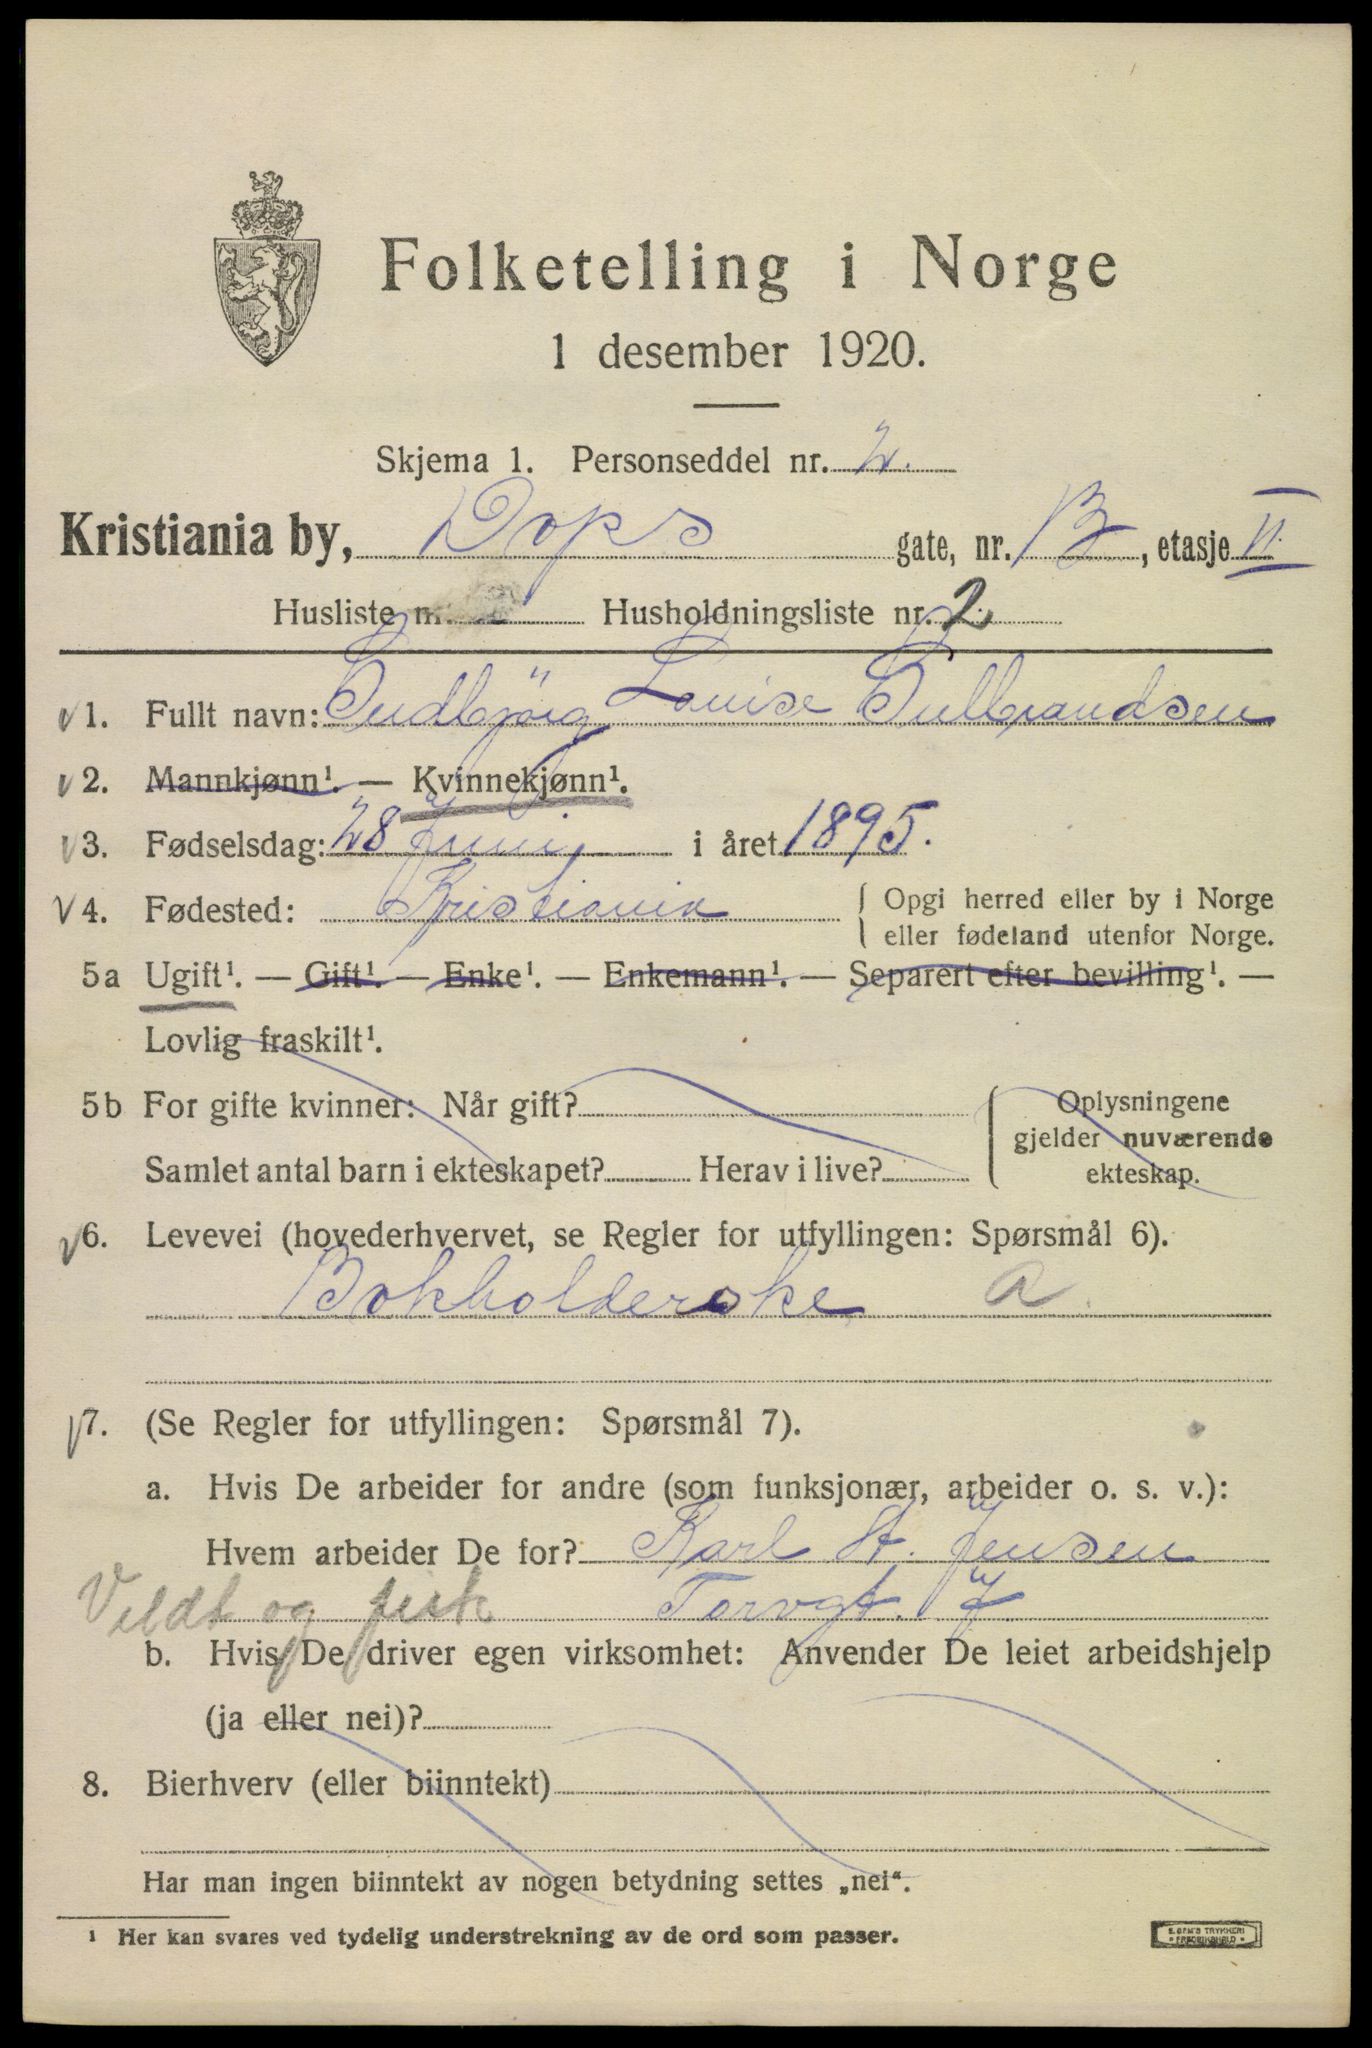 Folketelling i Norge
1 desember 1920.
Skjema 1. Personseddel nr. 2.
Kristiania by, Dops gate, nr. 13, etasje II
Husliste nr. Husholdningsliste nr. 2
1. Fullt navn: Gudbjörg Louise Gulbrandsen
2. Mannkjønn¹. — Kvinnekjønn¹.
3. Fødselsdag: 28 Juni i året 1895.
4. Fødested: Kristiania { Opgi herred eller by i Norge
eller fødeland utenfor Norge.
5a Ugift¹. — Gift¹. — Enke¹. — Enkemann¹. — Separert efter bevilling¹. —
Lovlig fraskilt¹.
5b For gifte kvinner: Når gift? { Oplysningene
gjelder nuværende
Samlet antal barn i ekteskapet? Herav i live? ekteskap.
6. Levevei (hovederhvervet, se Regler for utfyllingen: Spørsmål 6).
Bokholderske a.
7. (Se Regler for utfyllingen: Spørsmål 7).
a. Hvis De arbeider for andre (som funksjonær, arbeider o. s. v.):
Hvem arbeider De for? Karl A. Jensen
Vildt og fisk Torvgt. 7.
b. Hvis De driver egen virksomhet: Anvender De leiet arbeidshjelp
(ja eller nei)?
8. Bierhverv (eller biinntekt)
Har man ingen biinntekt av nogen betydning settes „nei".
¹ Her kan svares ved tydelig understrekning av de ord som passer.
E. SEM'S TRYKKERI
FREDRIKSHALD